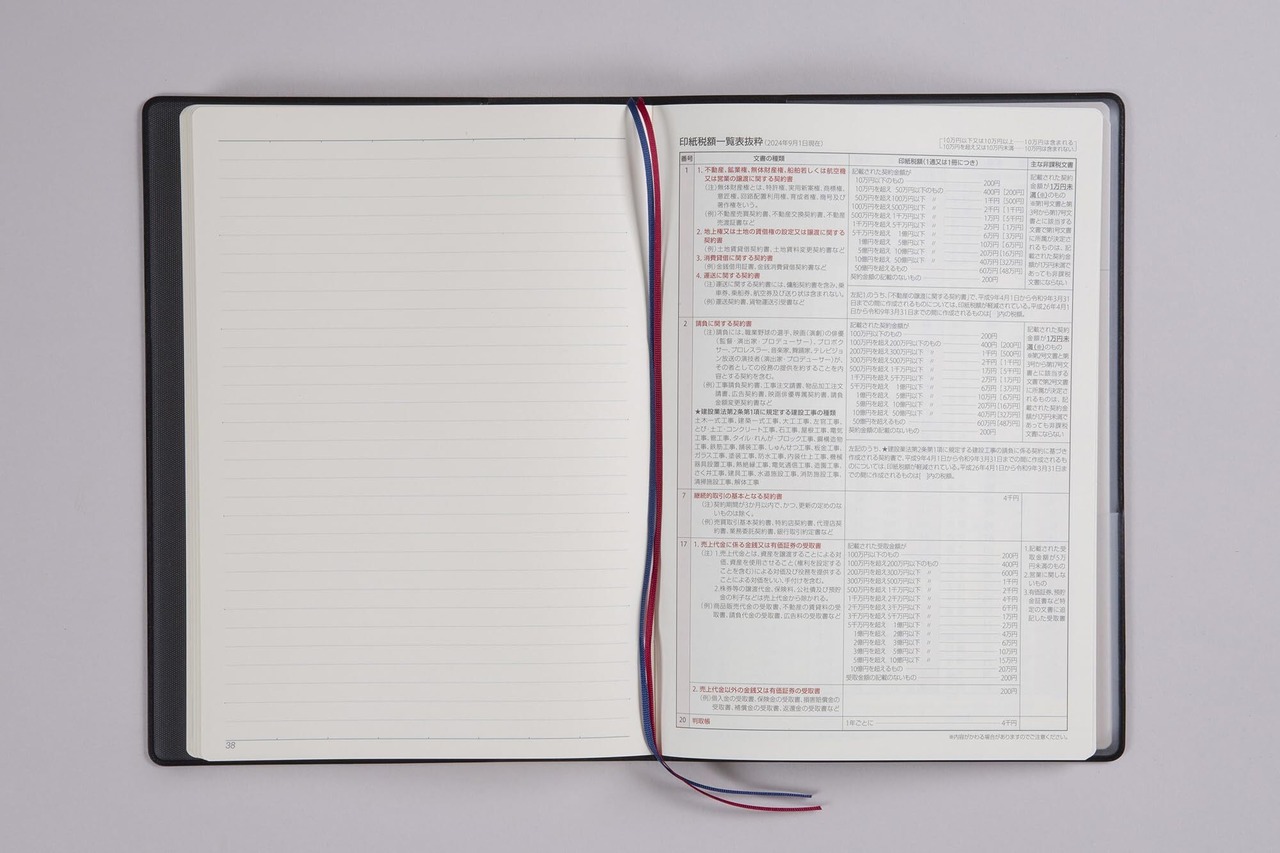 38
印紙税額一覧表抜粋(2024年9月1日現在)
[10万円以下又は10万円以上……10万円は含まれる]
[10万円を超え又は10万円未満……10万円は含まれない]
番号 文書の種類 印紙税額(1通又は1冊につき) 主な非課税文書
1
1. 不動産、鉱業権、無体財産権、船舶若しくは航空機
又は営業の譲渡に関する契約書
(注)無体財産権とは、特許権、実用新案権、商標権、
意匠権、回路配置利用権、育成者権、商号及び
著作権をいう。
(例)不動産売買契約書、不動産交換契約書、不動産
売渡証書など
2. 地上権又は土地の賃借権の設定又は譲渡に関する
契約書
(例)土地賃貸借契約書、土地賃料変更契約書など
3. 消費貸借に関する契約書
(例)金銭借用証書、金銭消費貸借契約書など
4. 運送に関する契約書
(注)運送に関する契約書には、傭船契約書を含み、乗
車券、乗船券、航空券及び送り状は含まれない。
(例)運送契約書、貨物運送引受書など
記載された契約金額が
10万円以下のもの 200円
10万円を超え 50万円以下のもの 400円 [200円]
50万円を超え 100万円以下 〃 1千円 [500円]
100万円を超え 500万円以下 〃 2千円 [1千円]
500万円を超え 1千万円以下 〃 1万円 [5千円]
1千万円を超え 5千万円以下 〃 2万円 [1万円]
5千万円を超え 1億円以下 〃 6万円 [3万円]
1億円を超え 5億円以下 〃 10万円 [6万円]
5億円を超え 10億円以下 〃 20万円 [16万円]
10億円を超え 50億円以下 〃 40万円 [32万円]
50億円を超えるもの 60万円 [48万円]
契約金額の記載のないもの 200円
記載された契約
金額が1万円未
満(※)のもの
※第1号文書と第
3号から第17号文
書とに該当する
文書で第1号文書
に所属が決定さ
れるものは、記
載された契約金
額が1万円未満で
あっても非課税
文書にならない
左記1.のうち、「不動産の譲渡に関する契約書」で、平成9年4月1日から令和9年3月31
日までの間に作成されるものについては、印紙税額が軽減されている。平成26年4月1
日から令和9年3月31日までの間に作成されるものは[ ]内の税額。
2
請負に関する契約書
(注)請負には、職業野球の選手、映画(演劇)の俳優
(監督・演出家・プロデューサー)、プロボク
サー、プロレスラー、音楽家、舞踊家、テレビジョ
ン放送の演技者(演出家・プロデューサー)が、
その者としての役務の提供を約することを内
容とする契約を含む。
(例)工事請負契約書、工事注文請書、物品加工注文
請書、広告契約書、映画俳優専属契約書、請負
金額変更契約書など
★建設業法第2条第1項に規定する建設工事の種類
土木一式工事、建築一式工事、大工工事、左官工事、
とび・土工・コンクリート工事、石工事、屋根工事、電気
工事、管工事、タイル・れんが・ブロック工事、鋼構造物
工事、鉄筋工事、舗装工事、しゅんせつ工事、板金工事、
ガラス工事、塗装工事、防水工事、内装仕上工事、機械
器具設置工事、熱絶縁工事、電気通信工事、造園工事、
さく井工事、建具工事、水道施設工事、消防施設工事、
清掃施設工事、解体工事
記載された契約金額が
100万円以下のもの 200円
100万円を超え 200万円以下のもの 400円 [200円]
200万円を超え 300万円以下 〃 1千円 [500円]
300万円を超え 500万円以下 〃 2千円 [1千円]
500万円を超え 1千万円以下 〃 1万円 [5千円]
1千万円を超え 5千万円以下 〃 2万円 [1万円]
5千万円を超え 1億円以下 〃 6万円 [3万円]
1億円を超え 5億円以下 〃 10万円 [6万円]
5億円を超え 10億円以下 〃 20万円 [16万円]
10億円を超え 50億円以下 〃 40万円 [32万円]
50億円を超えるもの 60万円 [48万円]
契約金額の記載のないもの 200円
記載された契約
金額が1万円未
満(※)のもの
※第2号文書と第
3号から第17号文
書とに該当する
文書で第2号文書
に所属が決定さ
れるものは、記
載された契約金
額が1万円未満で
あっても非課税
文書にならない
左記のうち、★建設業法第2条第1項に規定する建設工事の請負に係る契約に基づき
作成される契約書で、平成9年4月1日から令和9年3月31日までの間に作成されるも
のについては、印紙税額が軽減されている。平成26年4月1日から令和9年3月31日ま
での間に作成されるものは[ ]内の税額。
7
継続的取引の基本となる契約書
(注)契約期間が3か月以内で、かつ、更新の定めのな
いものは除く。
(例)売買取引基本契約書、特約店契約書、代理店契
約書、業務委託契約書、銀行取引約定書など
4千円
17
1. 売上代金に係る金銭又は有価証券の受取書
(注)1.売上代金とは、資産を譲渡することによる対
価、資産を使用させること(権利を設定する
ことを含む)による対価及び役務を提供する
ことによる対価をいい、手付けを含む。
2.株券等の譲渡代金、保険料、公社債及び預貯
金の利子などは売上代金から除かれる。
(例)商品販売代金の受取書、不動産の賃貸料の受
取書、請負代金の受取書、広告料の受取書など
記載された受取金額が
100万円以下のもの 200円
100万円を超え 200万円以下のもの 400円
200万円を超え 300万円以下 〃 600円
300万円を超え 500万円以下 〃 1千円
500万円を超え 1千万円以下 〃 2千円
1千万円を超え 2千万円以下 〃 4千円
2千万円を超え 3千万円以下 〃 6千円
3千万円を超え 5千万円以下 〃 1万円
5千万円を超え 1億円以下 〃 2万円
1億円を超え 2億円以下 〃 4万円
2億円を超え 3億円以下 〃 6万円
3億円を超え 5億円以下 〃 10万円
5億円を超え 10億円以下 〃 15万円
10億円を超えるもの 20万円
受取金額の記載のないもの 200円
1.記載された受
取金額が5万
円未満のもの
2.営業に関しな
いもの
3.有価証券、預貯
金証書など特
定の文書に追
記した受取書
2. 売上代金以外の金銭又は有価証券の受取書
(例)借入金の受取書、保険金の受取書、損害賠償金の
受取書、補償金の受取書、返還金の受取書など
200円
20 判取帳 1年ごとに 4千円
※内容がかわる場合がありますのでご注意ください。